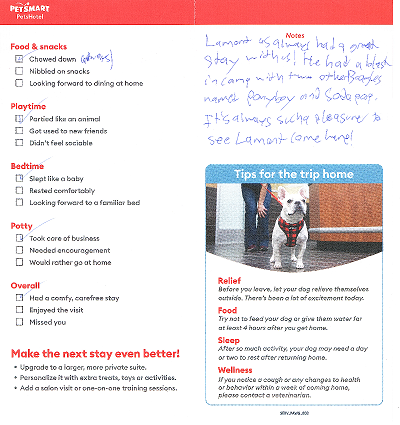 PETSMART
PetsHotel
Food & snacks
Chowed down (always)
Nibbled on snacks
Looking forward to dining at home
Playtime
Partied like an animal
Got used to new friends
Didn't feel sociable
Bedtime
Slept like a baby
Rested comfortably
Looking forward to a familiar bed
Potty
Took care of business
Needed encouragement
Would rather go at home
Overall
Had a comfy, carefree stay
Enjoyed the visit
Missed you
Make the next stay even better!
• Upgrade to a larger, more private suite.
• Personalize it with extra treats, toys or activities.
• Add a salon visit or one-on-one training sessions.
Notes
Lamont as always had a great
stay with us! He had a blast
in camp with two other Beagles
named Ponyboy and Sodapop.
It's always such a pleasure to
see Lamont come here!
Tips for the trip home
Relief
Before you leave, let your dog relieve themselves
outside. There's been a lot of excitement today.
Food
Try not to feed your dog or give them water for
at least 4 hours after you get home.
Sleep
After so much activity, your dog may need a day
or two to rest after returning home.
Wellness
If you notice a cough or any changes to health
or behavior within a week of coming home,
please contact a veterinarian.